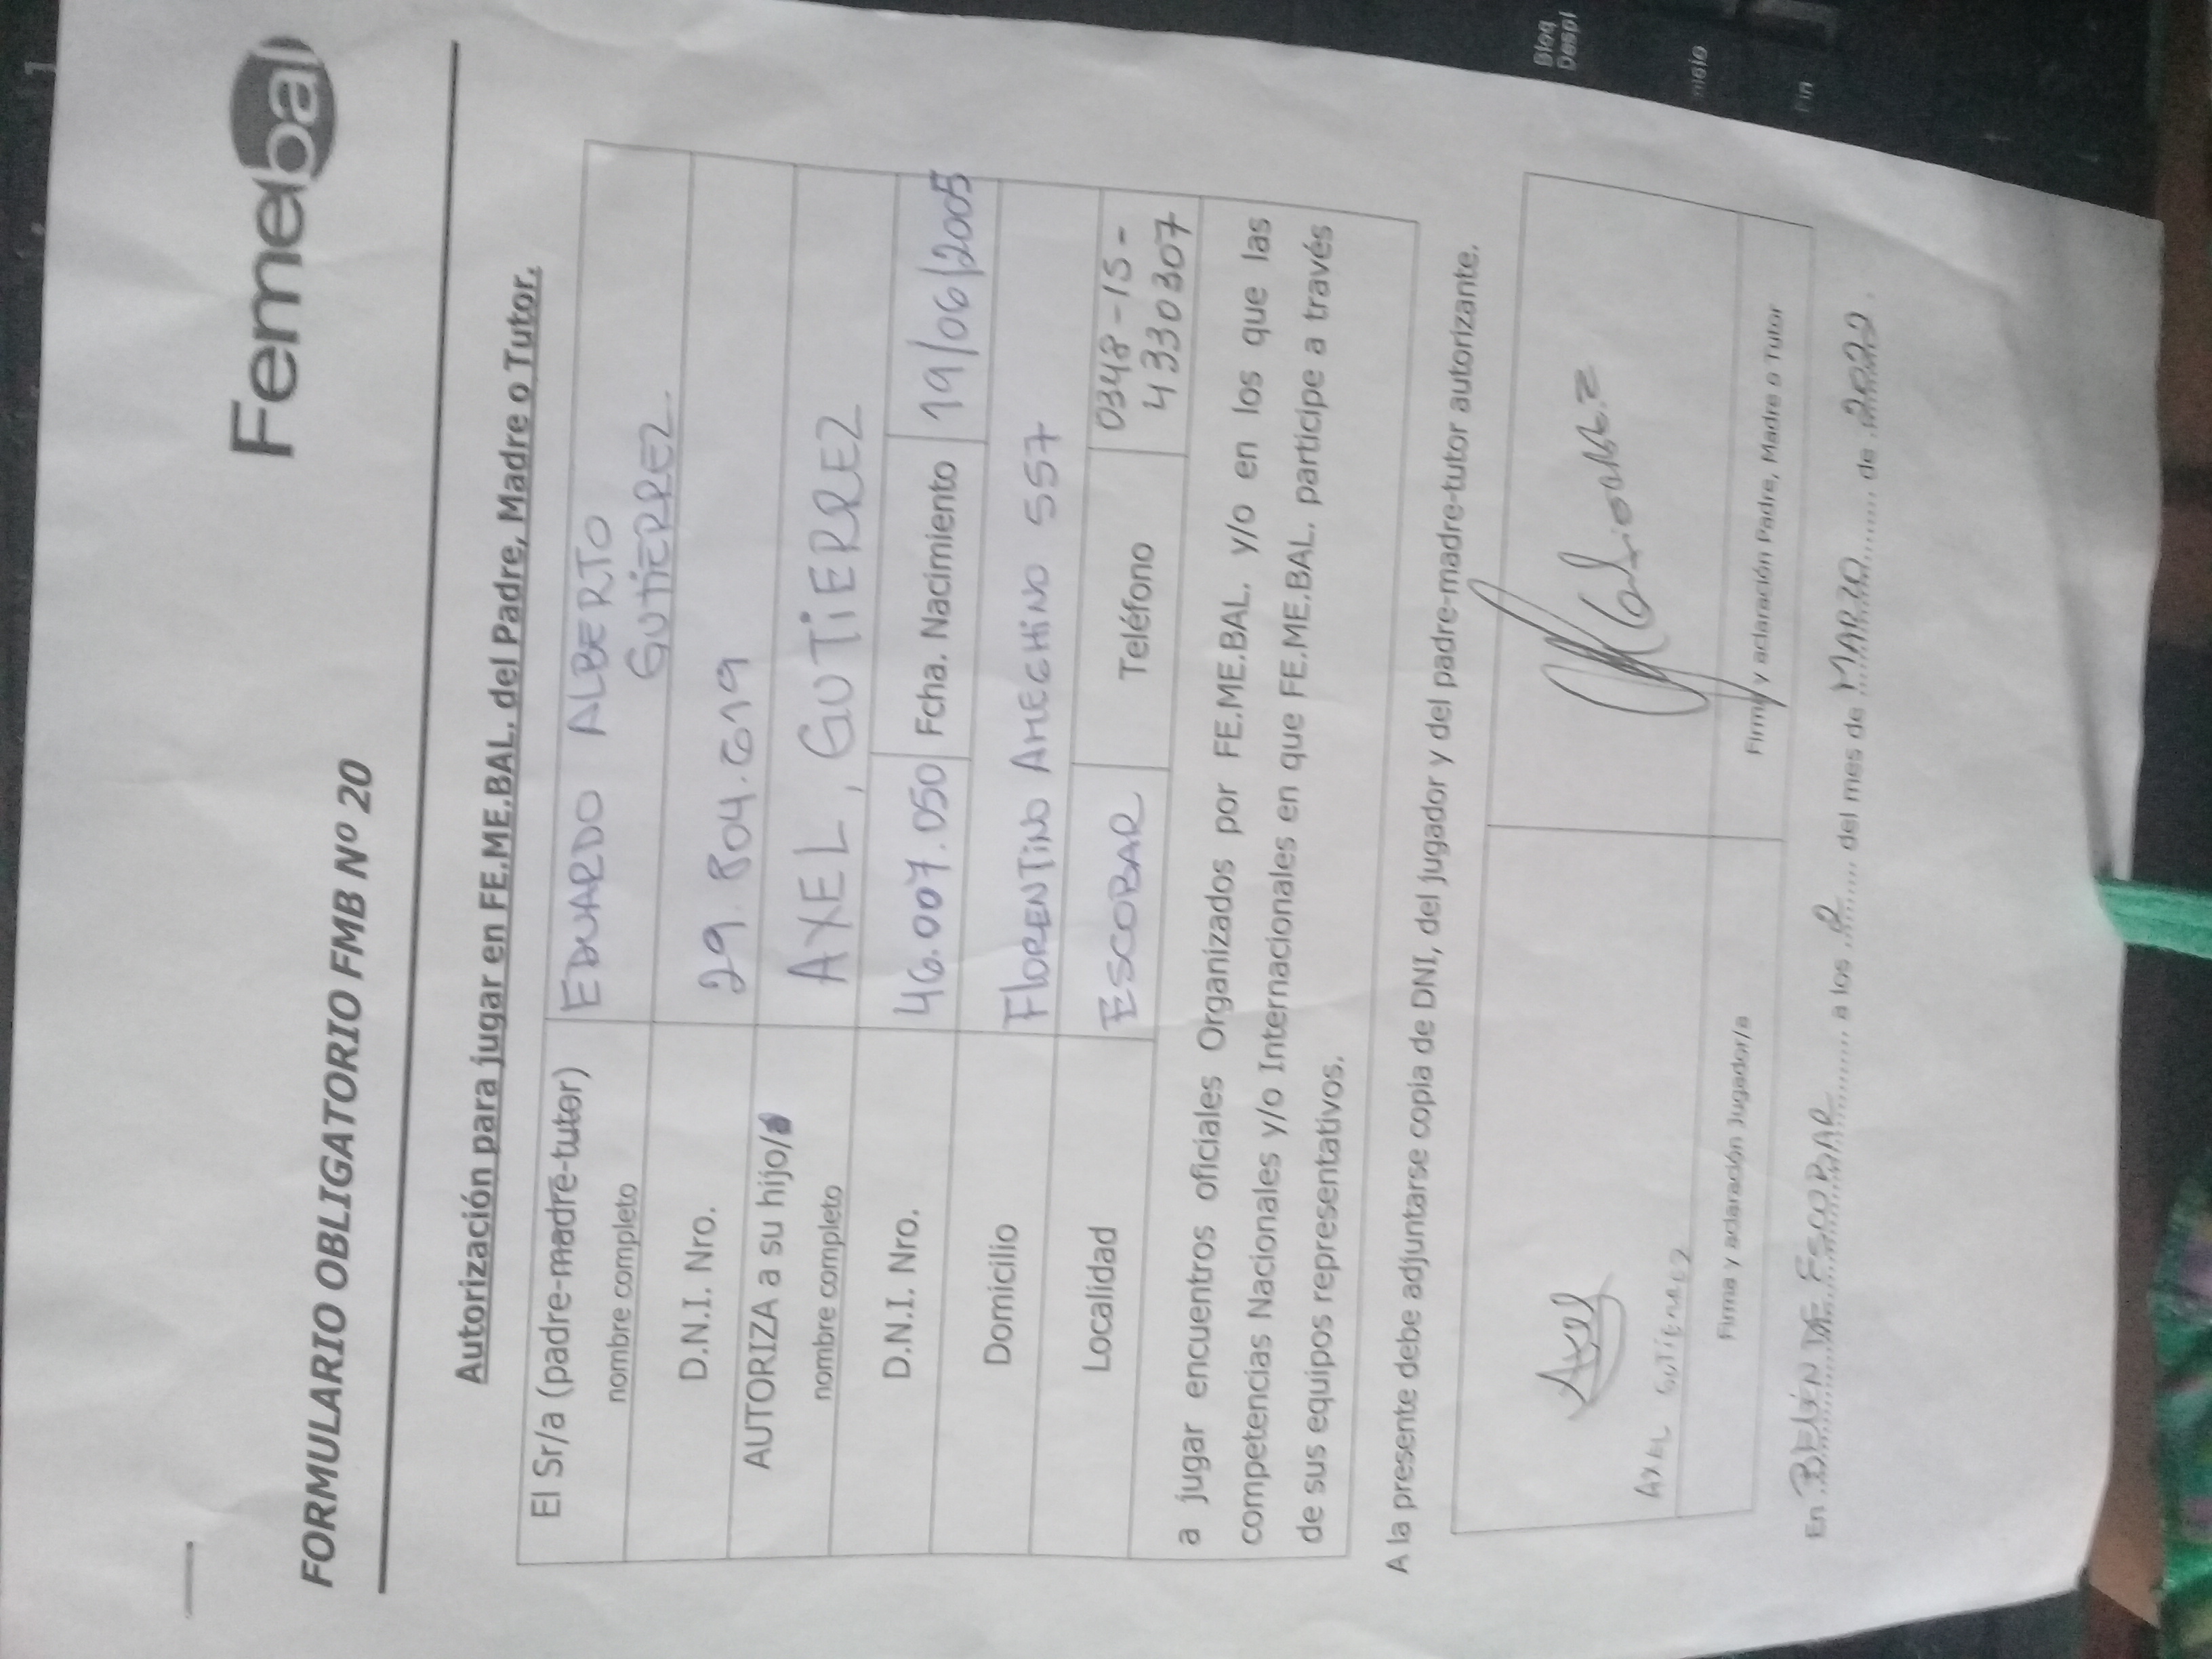 Femebal
FORMULARIO OBLIGATORIO FMB Nº 20
Autorización para jugar en FE.ME.BAL. del Padre, Madre o Tutor.
El Sr/a (padre-madre-tutor) EDUARDO ALBERTO
nombre completo GUTIERREZ.
D.N.I. Nro. 29.804.619
AUTORIZA a su hijo/a AXEL, GUTIERREZ
nombre completo
D.N.I. Nro. 46.007.050 Fcha. Nacimiento 19/06/2005
Domicilio FLORENTINO AMEGHINO 557
Localidad ESCOBAR Teléfono 0348-15-
4330307
a jugar encuentros oficiales Organizados por FE.ME.BAL. y/o en los que las
competencias Nacionales y/o Internacionales en que FE.ME.BAL. participe a través
de sus equipos representativos.
A la presente debe adjuntarse copia de DNI, del jugador y del padre-madre-tutor autorizante.
Axel
AXEL GUTIERREZ
Firma y aclaración Jugador/a Firma y aclaración Padre, Madre o Tutor
En BELÉN DE ESCOBAR a los del mes de MARZO de 2022.
Bloq
Despl
Inicio
Fin